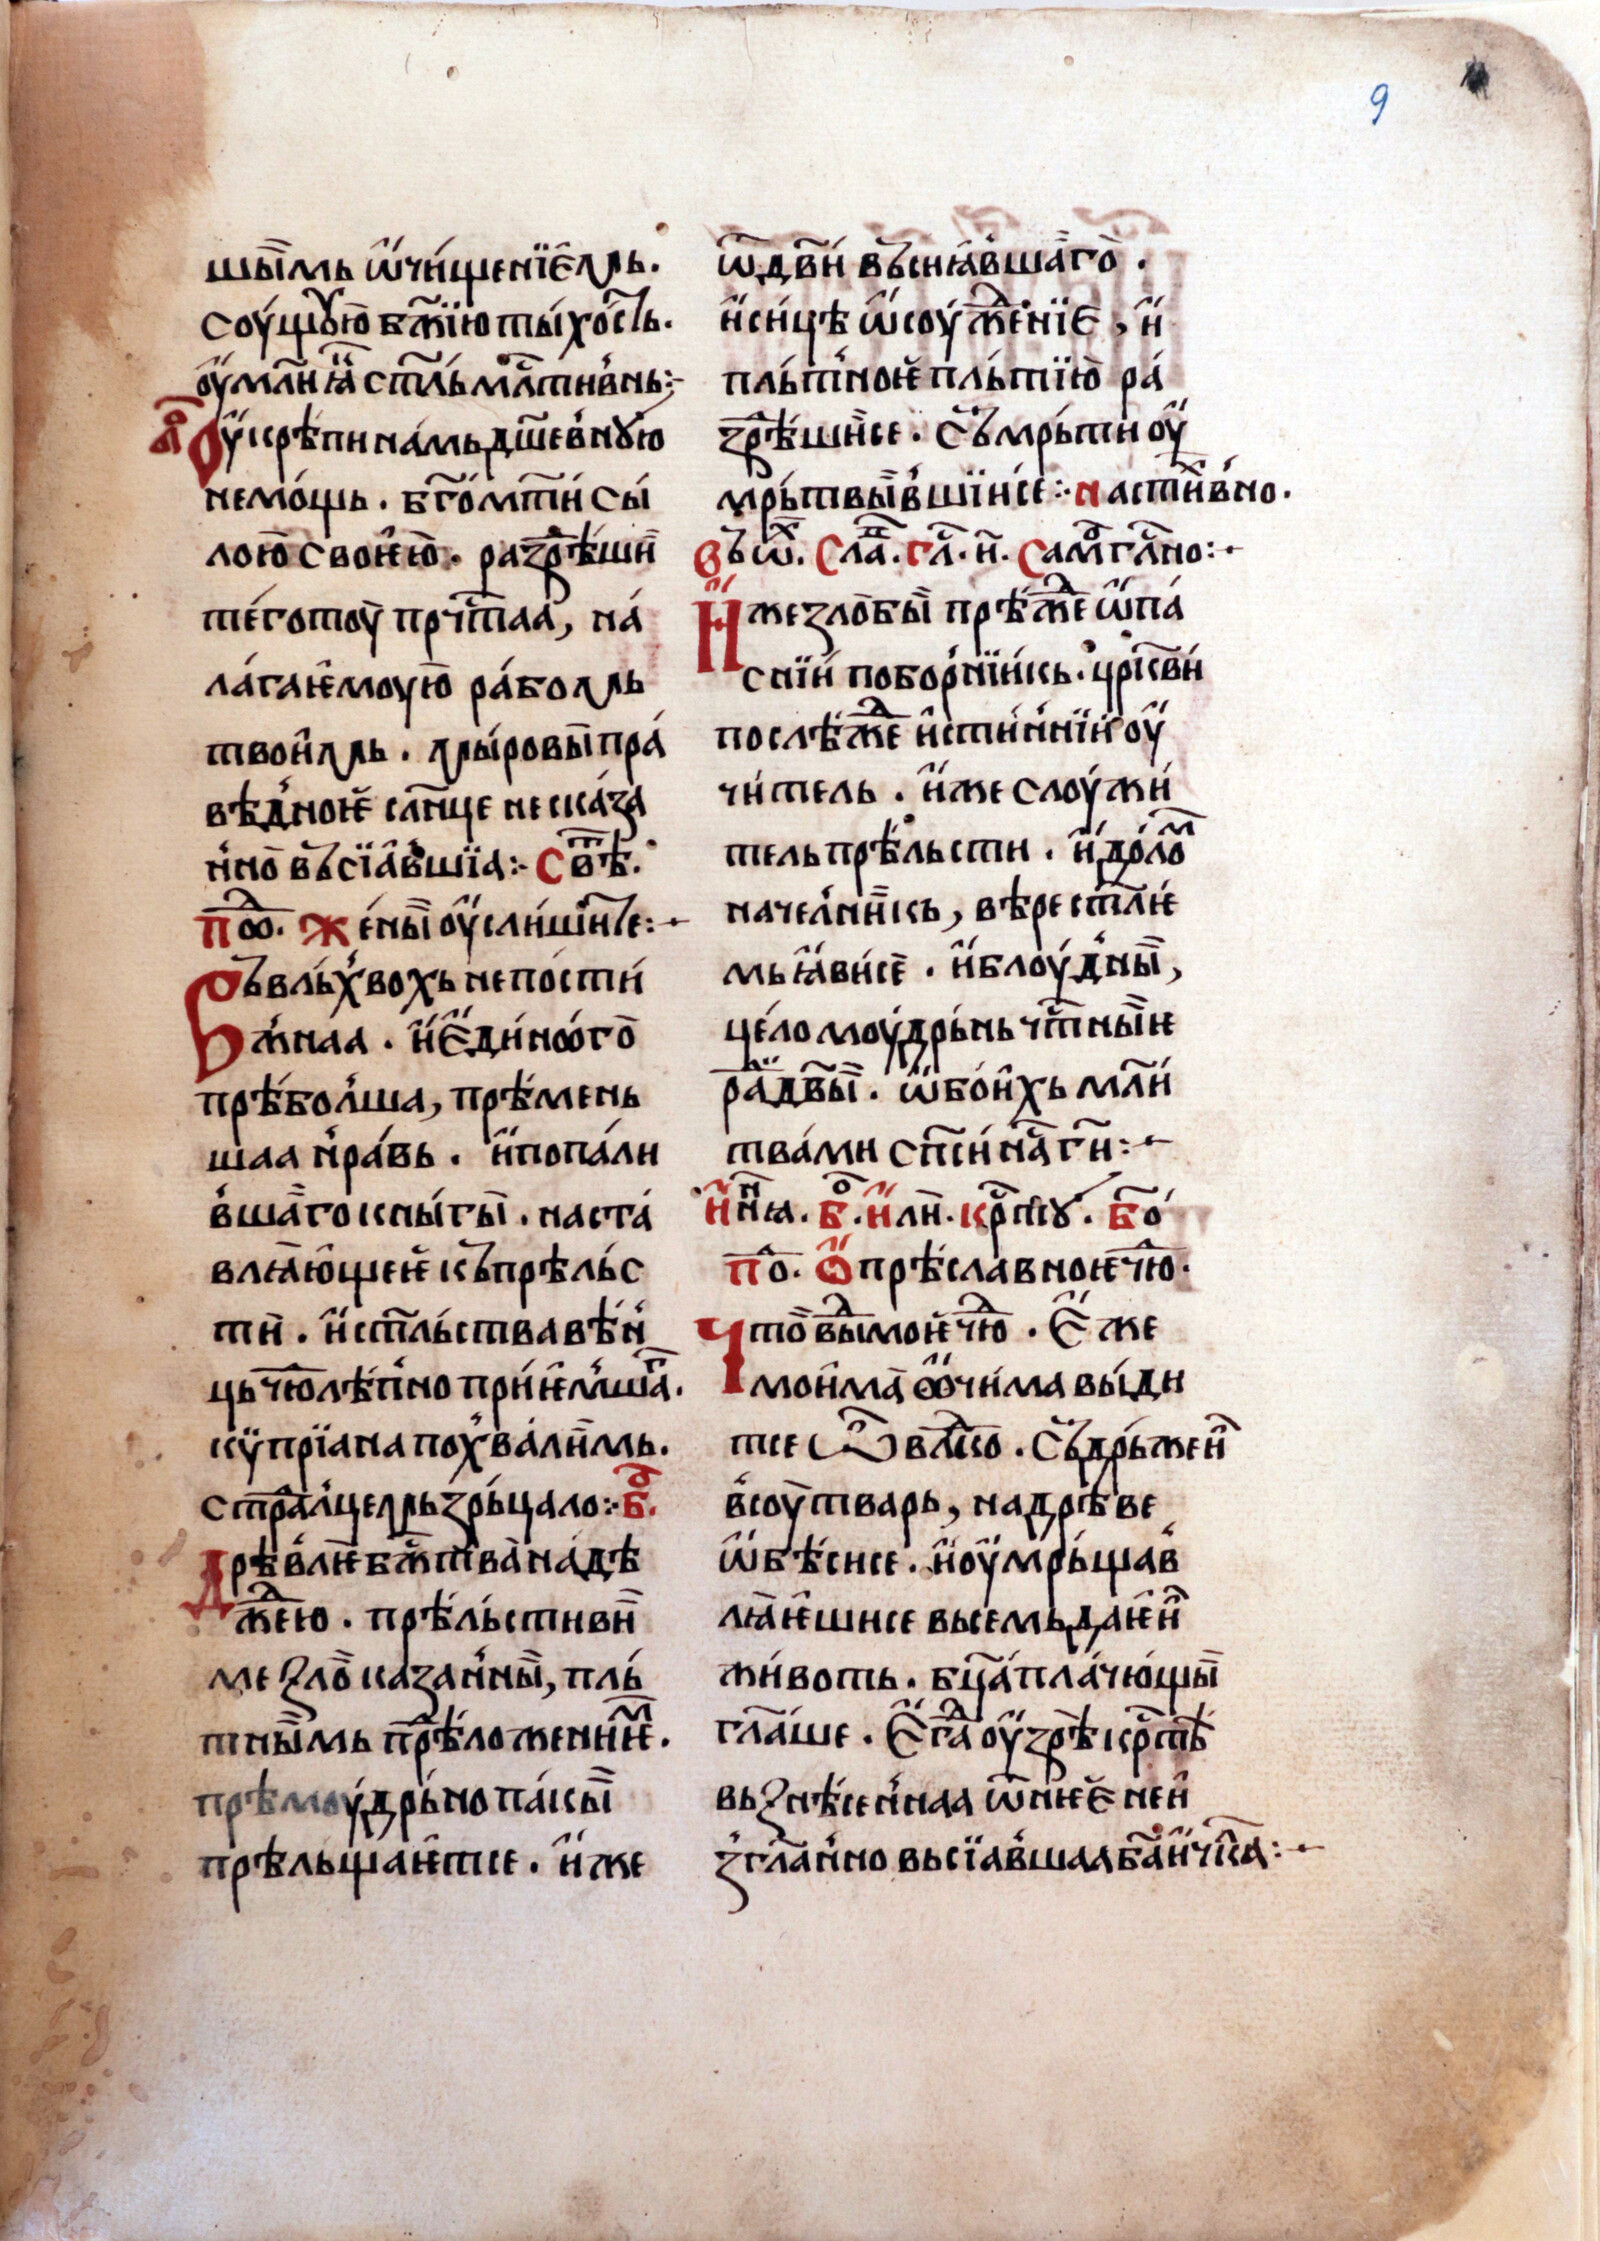 9
шы̑мь ѡ҆чи́щенїе҆мь.
соу́щꙋю бж҃їю ты́хо́сть.
оу҆мл҃и ꙗ҆ ст҃ль мл҃тивнь:-
оу҆крѣ́пи на́мь дш҃евн́ꙋю
немо́щь. бг҃ом҃ти сы́
лою̀ свое҆ю̀. разрѣ́ши
те́готоу̀ прч҃таа, на́
лага́ѥмоую̀ ра́бомь
твои́мь. мы́ровы̀ пра́
вѣ́дноѥ сл҃нце неска́за
нно̀ въсїа́вшїа:- Свт҃ѣ.
Пѡⷣ. Же́ны̀ оу҆сли́шите:-
Въ вль́хвохь непо́сти́
жнаа. и҆ є҆ди́нѡго̀
прѣ́болша, прѣ́мень
шаа нра́вь. и҆ попа́ли
вша̀го кны́гы̀. наста́
влꙗ́ющеѥ къ прѣль́с
ти̑. и҆ ст҃ль́ства вѣ́н
ць чю̑лѣ́пно при́ѥмшаⷢ.
кѵ̈прїана похва́ли́мь.
страⷣа́лцемь зрь́цало:- Бⷪ.
Дрѣ́влѥ бж҃тва̀ на́дѣ
жⷣею. прѣ́ль́стивни
ме зло̀ каза́нны̀, пль́
тны̑мь прѣ́ложениѥⷨ.
прѣмоу́дрь́но па́кы̀
прѣльща́ѥтсе. и҆же
ѿ дв҃и въсиꙗ́вша̀го̀.
и҆ си́це ѡ҆соуж́ⷣенїе, и҆
пль́тноѥ пль́тїю̀ ра́
зрѣ́ши́се. Съмрь́ти оу҆
мрь́твы̀вшїи́се:- настивⷯно.
Въ ѿⷯ. Слаⷡ. гл҃. и҃. Самⷪгл҃но:-
И҆же зло́бы̀ прѣ́жⷣе ѡ҆па́
снїи побо́рнїкь. цр҃кв́и
послѣ́жⷣе и҆сти́ннїи оу҆
чи́тель. и҆же слоу́жи́
тель прѣ́льсти. и҆доло́ⷨ
наче́лникь, вѣ́ре ст҃лѥ
мь ꙗ҆ви́се. и҆ блоу́дны̀,
це́ломоу́дрь́нь чт҃ны̀ѥ
раⷣ дв҃ы̀. ѡ҆бои́хь мл҃и
тва́ми сп҃си на́ⷭ гн҃:-
И҆ нн҃ꙗ. Бⷪ. И҆ли. крⷭ҇тꙋ. Бо́
по҃. Ѽ прѣ́славноѥ чю̑.
Что̀ вы́моѥ чю̑. Є҆же
мои́ма̀ ѻ҆чи́ма вы́ди
тсе ѽ влⷣко. Съдрь́жеи
всоу̀ тварь, на дрѣ́ве
ѡ҆бѣ́сисе. и҆ оу҆мрьщав
лꙗ́ѥшисе высемь даѥи
живо́ть. бц҃а пла́чющы̀
гл҃аше. Є҆гⷣа оу҆зрѣ̀ крⷭ҇тѣ́
възнѣ́сеннаа ѿ ниѥ неи
згл҃анно высїа́вшаа ба҃ и҆ чл҃ка:-